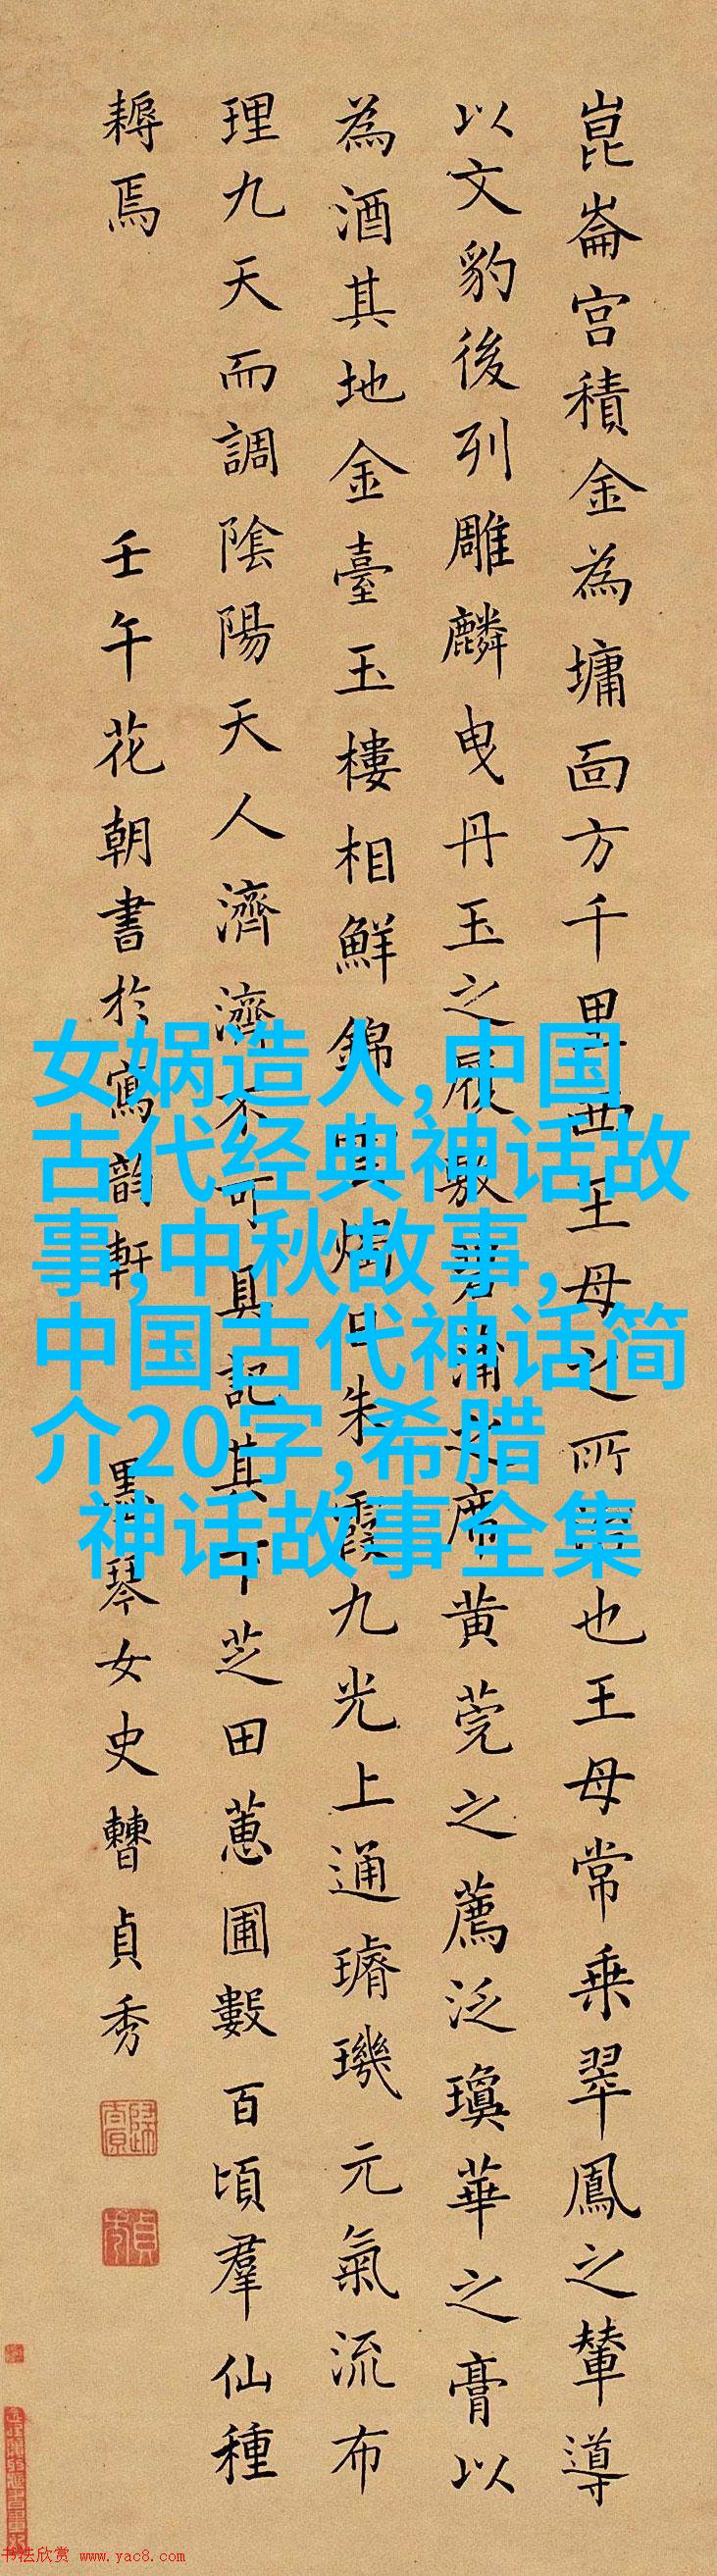 崑崙宮積金為墉面方千里西王母之所也王母常乘翠鳳之輦導
以文豹後列雕麟曳丹玉之履敷碧蒲之席黄莞之薦泛瓊華之膏以
為酒其地金臺玉樓相鮮錦雲燭日朱霞九光上通璿璣元氣流布
理九天而調陰陽天人濟濟不可具記其下芝田蕙圃數百頃羣仙種
耨焉
壬午花朝書於寫韵軒 墨琴女史曹貞秀
女娲造人,中国
古代经典神话故
事,中秋故事,
中国古代神话简
介20字,希腊
神话故事全集
书法欣赏 www.yac8.com